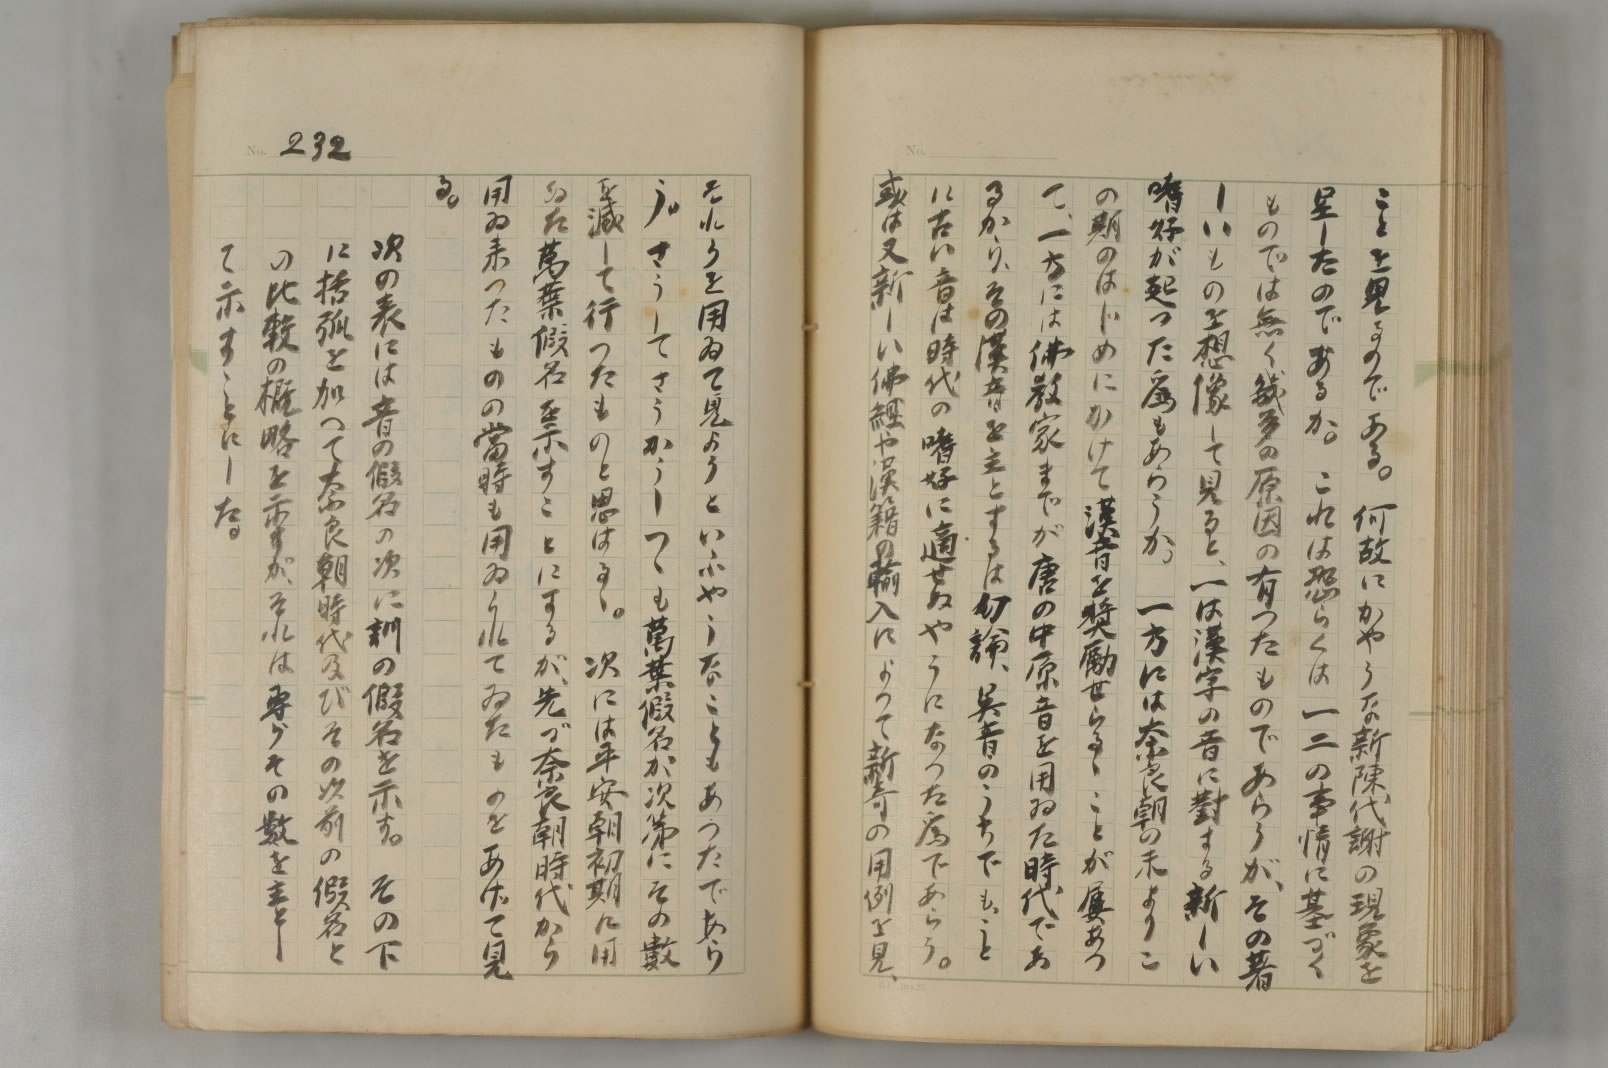 ことを見るのである。何故にかやうな新陳代謝の現象を
呈したのであるか。これは恐らくは一二の事情に基づく
ものでは無く幾多の原因の有つたものであらうが、その著
しいものを想像して見ると、一は漢字の音に對する新しい
嗜好が起つた爲もあらうか。一方には奈良朝の末よりこ
の期のはじめにかけて漢音を奬勵せらるゝことが屢あつ
て、一方には佛教家までが唐の中原音を用ゐた時代であ
るから、その漢音を主とするは勿論、呉音のうちでも、こと
に古い音は時代の嗜好に適せぬやうになつた爲であらう。
或は又新しい佛經や漢籍の輸入によつて新奇の用例を見、
No.
No. 232
それらを用ゐて見ようといふやうなこともあつたであら
う。さうしてさうかうしつゝも萬葉假名が次第にその數
を減して行つたものと思はるゝ。次には平安朝初期に用
ゐた萬葉假名を示すことにするが、先づ奈良朝時代から
用ゐ来つたものの當時も用ゐられてゐたものをあげて見
る。
次の表には音の假名の次に訓の假名を示す。その下
に括弧を加へて奈良朝時代及びその次前の假名と
の比較の概略を示すが、それは專らその數を主とし
て示すことにした。